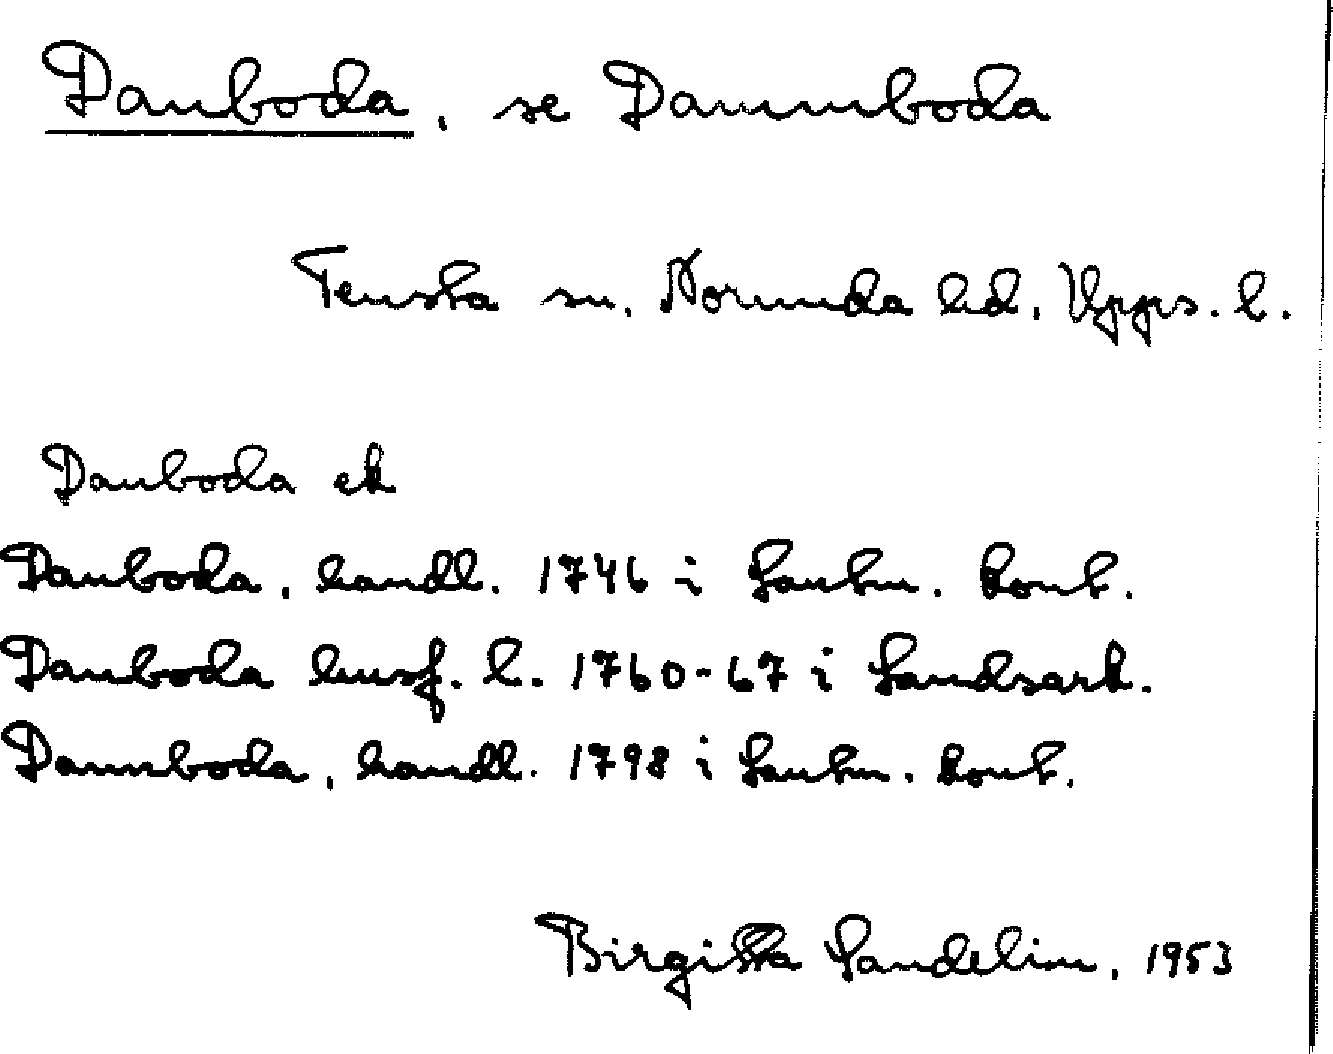 Danboda, se Dammboda
Tensta sn. Norunda hd. Upps. l.
Danboda ek
Danboda, handl. 1746 i Lantm. kont.
Danboda husf. l. 1760-67 i Landsark.
Dannboda, handl. 1798 i Lantm. kont.
Birgitta Sandelin, 1953